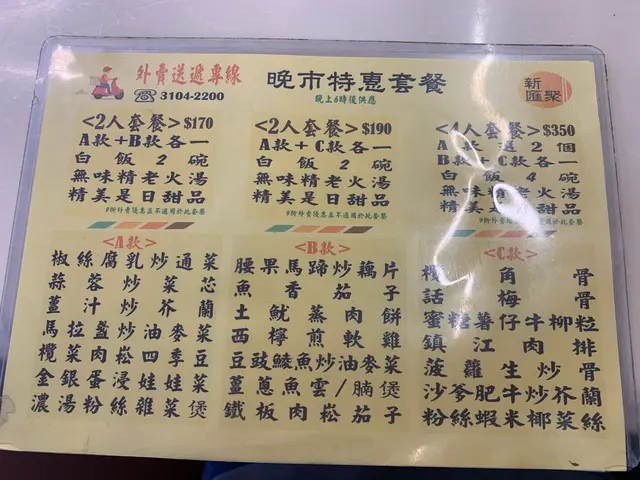 外賣送遞專線
☎3104-2200
晚市特惠套餐
晚上6時後供應
新
匯聚
<2人套餐>$170
A款+B款各一
白飯2碗
無味精老火湯
精美是日甜品
9折外賣優惠並不適用於此套餐
<2人套餐>$190
A款+C款各一
白飯2碗
無味精老火湯
精美是日甜品
9折外賣優惠並不適用於此套餐
<4人套餐>$350
A款選2個
B款+C款各一
白飯4碗
無味精老火湯
精美是日甜品
9折外賣優惠並不適用於此套餐
<A款>
椒絲腐乳炒通菜
蒜蓉炒菜芯
薑汁炒芥蘭
馬拉盞炒油麥菜
欖菜肉崧四季豆
金銀蛋浸娃娃菜
濃湯粉絲雜菜煲
<B款>
腰果馬蹄炒藕片
魚香茄子
土魷蒸肉餅
西檸煎軟雞
豆豉鯪魚炒油麥菜
薑蔥魚雲/腩煲
鐵板肉崧茄子
<C款>
欖角骨
話梅骨
蜜糖薯仔牛柳粒
鎮江肉排
菠蘿生炒骨
沙爹肥牛炒芥蘭
粉絲蝦米椰菜絲